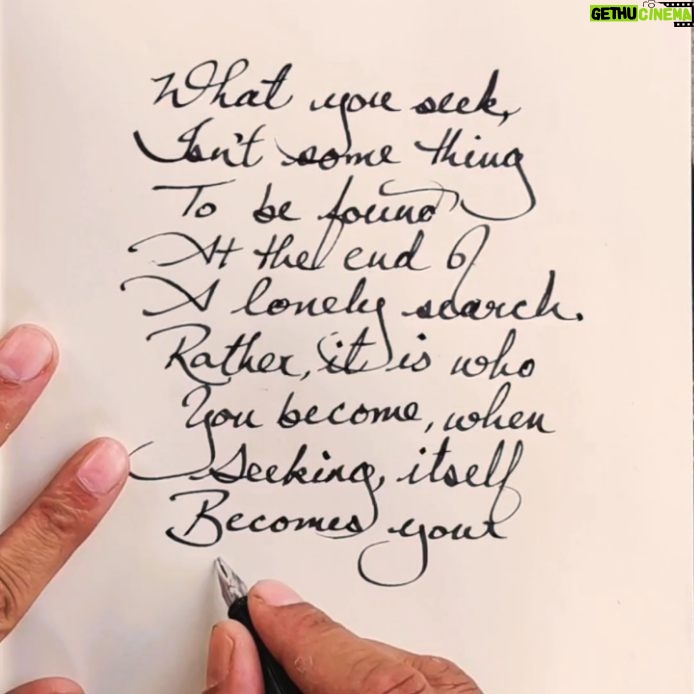 GETHUCINEMA
What you seek,
Isn't some thing
To be found
At the end of
A lonely search.
Rather, it is who
You become, when
Seeking, itself
Becomes your